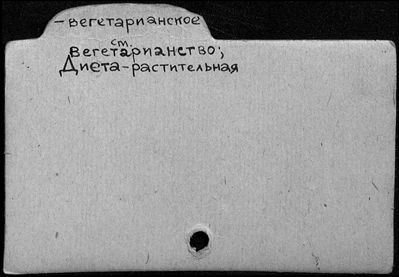 -вегетарианское
см.
Вегетарианство;
Диета-растительная